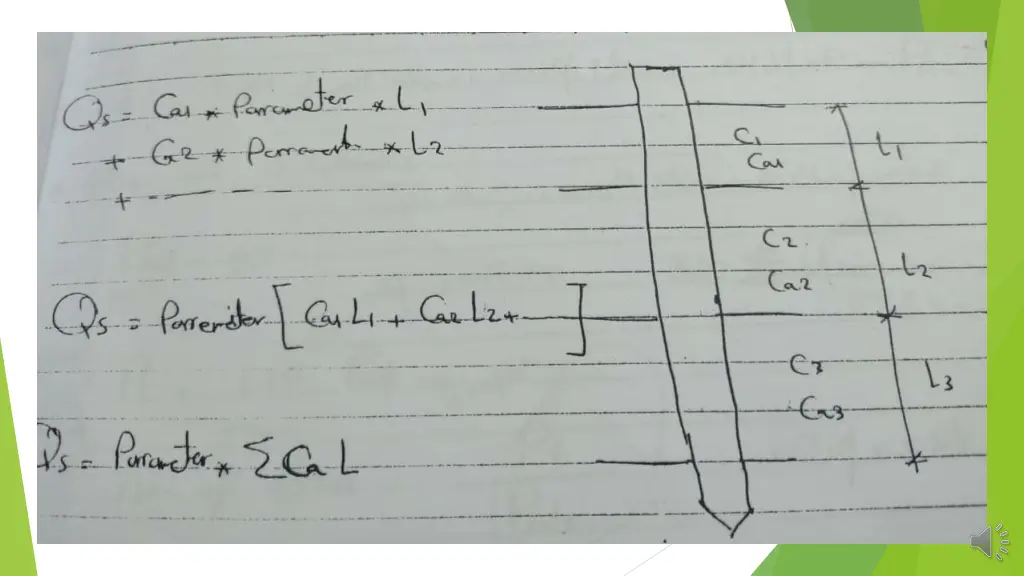 Qs = Ca1 * Parameter * L1
+ Ca2 * Parameter * L2
+ - - - -
Qs = Parameter [ Ca1 L1 + Ca2 L2 + —— ]
Qs = Parameter * Σ Ca L
C1
Ca1
L1
C2
Ca2
L2
C3
Ca3
L3